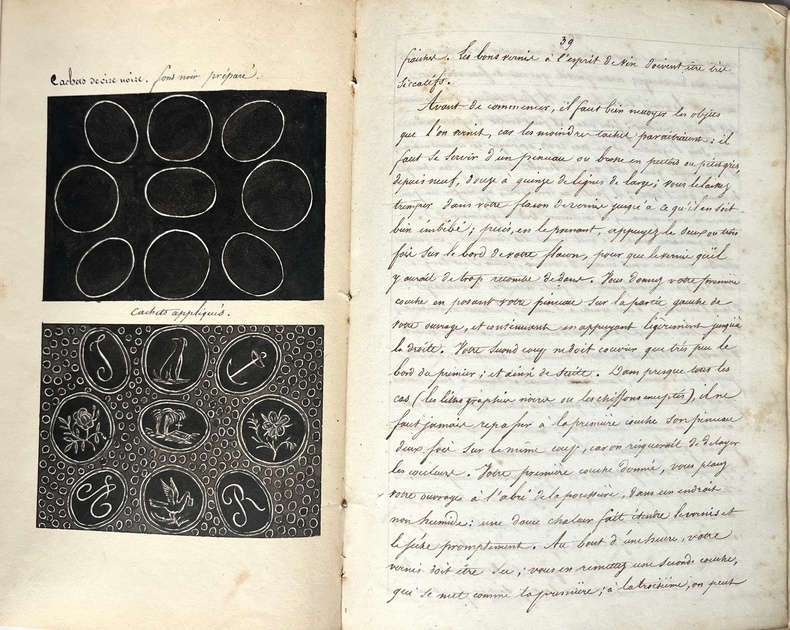 Cachets de cire noire. fond noir préparé.
cachets appliqués.
J
A
R
39
fraiches. Les bons vernis à l'esprit de vin doivent être très
siccatifs.
Avant de commencer, il faut bien nettoyer les objets
que l'on vernit, car les moindres taches paraitraient : il
faut se servir d'un pinceau ou brosse en
depuis neuf, douze à quinze de lignes de large ; vous le laissez
tremper dans votre flacon de vernis jusqu'à ce qu'il en soit
bien imbibé ; puis, en le prenant, appuyez le deux ou trois
fois sur le bord de votre flacon, pour que le vernis qu'il
y aurait de trop retombe dedans. Vous donnez votre première
couche en posant votre pinceau sur la partie gauche de
votre ouvrage, et continuant en appuyant légèrement jusqu'à
la droite. Votre second coup ne doit couvrir que très peu le
bord du premier ; et ainsi de suite. Dans presque tous les
cas (les lithographies noires ou les chiffons exceptés), il ne
faut jamais repasser à la première couche son pinceau
deux fois sur le même coup, car on risquerait de délayer
les couleurs. Votre première couche donnée, vous placez
votre ouvrage à l'abri de la poussière, dans un endroit
non humide : une douce chaleur fait étendre le vernis et
le sèche promptement. Au bout d'une heure, votre
vernis doit être sec ; vous en remettez une seconde couche,
qui se met comme la première ; à la troisième, on peut